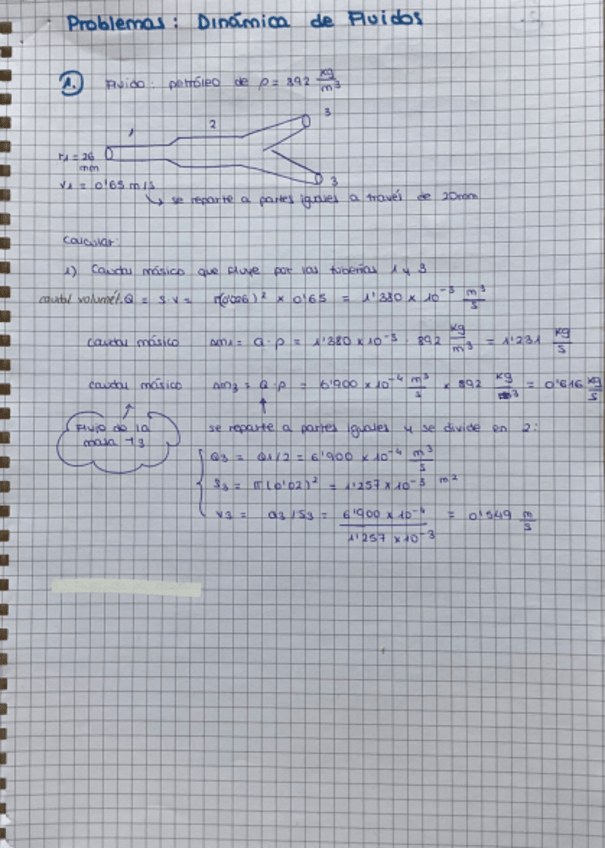 Problemas: Dinámica de Fluidos
1. Fluido: petróleo de ρ = 892 kg/m³
1 2 3
r1 = 26 mm
v1 = 0'65 m/s
3
↳ se reparte a partes iguales a través de 20mm
Calcular:
1) Caudal másico que fluye por las tuberías 1 y 3
caudal volumé. Q = S·v = π(0'026)² × 0'65 = 1'380 × 10⁻³ m³/s
caudal másico Qm1 = Q·ρ = 1'380 × 10⁻³ · 892 kg/m³ = 1'231 kg/s
caudal másico Qm3 = Q·ρ = 6'900 × 10⁻⁴ m³/s × 892 kg/m³ = 0'616 kg/s
Flujo de la masa → 3
se reparte a partes iguales y se divide en 2:
Q3 = Q1/2 = 6'900 × 10⁻⁴ m³/s
S3 = π(0'02)² = 1'257 × 10⁻³ m²
v3 = Q3/S3 = 6'900 × 10⁻⁴ / 1'257 × 10⁻³ = 0'549 m/s